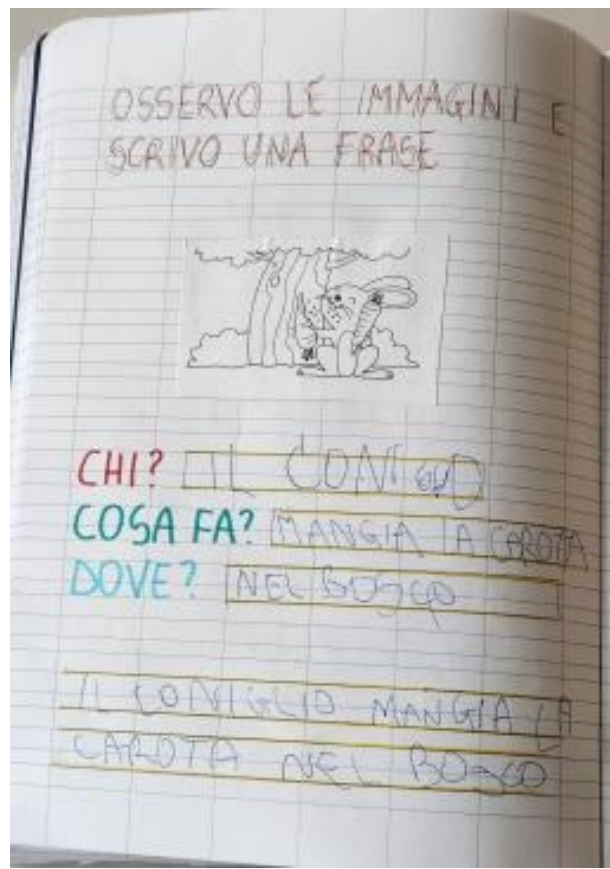 OSSERVO LE IMMAGINI E
SCRIVO UNA FRASE
CHI? IL CONIGLIO
COSA FA? MANGIA LA CAROTA
DOVE? NEL BOSCO
IL CONIGLIO MANGIA LA
CAROTA NEL BOSCO